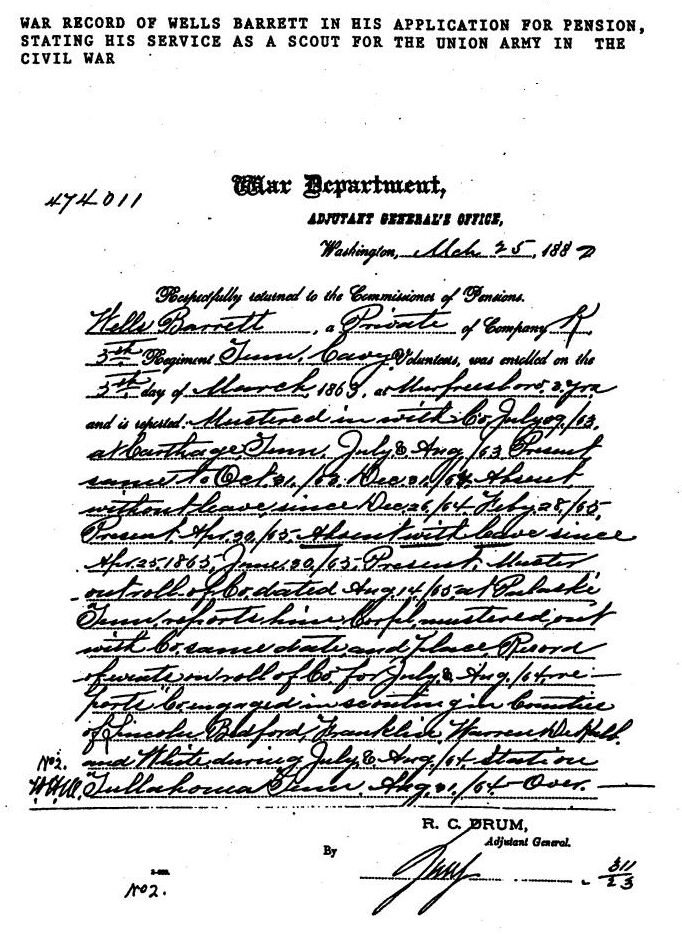 WAR RECORD OF WELLS BARRETT IN HIS APPLICATION FOR PENSION,
STATING HIS SERVICE AS A SCOUT FOR THE UNION ARMY IN THE
CIVIL WAR
474011
War Department,
ADJUTANT GENERAL'S OFFICE,
Washington, Mch 25, 188
Respectfully returned to the Commissioner of Pensions.
Wells Barrett, a Private of Company K,
5th Regiment Tenn. Cavy Volunteers, was enrolled on the
5th day of March, 1863, at Murfreesboro. 3 yrs
and is reported. Mustered in with Co. July 09/63.
at Carthage, Tenn. July & Aug/63 Present
same to Oct 31/63. Dec 31/64. Absent
without leave since Dec 26/64 Feby. 28/65,
Present. Apr. 30/65 Absent with leave since
Apr. 25 1865, June 30/65, Present, Muster
out roll of Co. dated Aug. 14/65, at Pulaski
Tenn. reports him Corpl. mustered out
with Co. same date and place Record
of events on roll of Co. for July & Aug/64 re-
ports "Co. engaged in scouting in Counties
of Lincoln Bedford, Franklin, Warren De Kalb.
and White during July & Aug/64 Station
No 2. Tullahoma Tenn. Aug. 31/64 Over.
R. C. DRUM,
Adjutant General.
By
311
23
No 2.